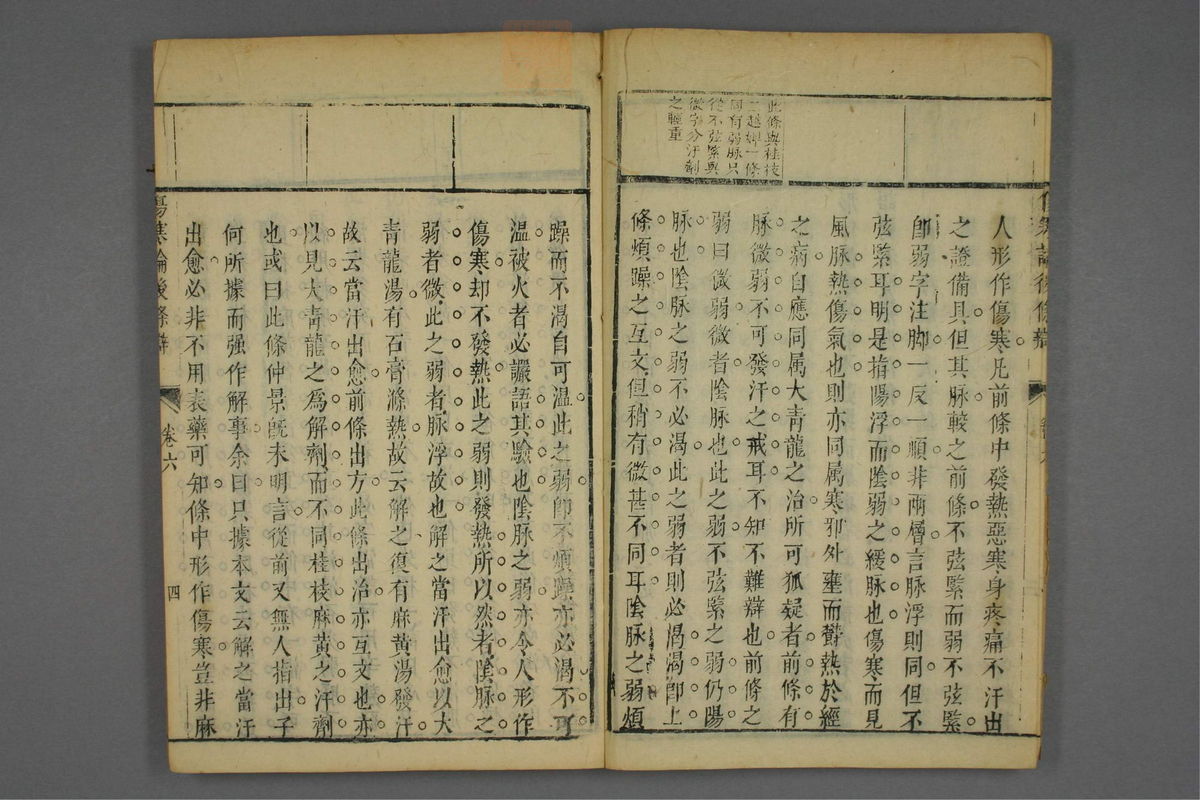 此條與桂枝
二越婢一條
同有弱脉只
從不弦緊與
微字分汗劑
之輕重
人形作傷寒凡前條中發熱惡寒身疼痛不汗出
之證備具但其脉較之前條不弦緊而弱不弦緊
卽弱字注脚一反一順非兩層言脉浮則同但不
弦緊耳明是指陽浮而陰弱之緩脉也傷寒而見
風脉熱傷氣也則亦同属寒邪外壅而鬱熱於經
之病自應同属大青龍之治所可狐疑者前條有
脉微弱不可發汗之戒耳不知不難辯也前條之
弱曰微弱微者陰脉也此之弱不弦緊之弱仍陽
脉也陰脉之弱不必渴此之弱者則必渴渴卽上
條煩躁之互文但稍有微甚不同耳陰脉之弱煩
躁而不渴自可温此之弱卽不煩躁亦必渴不可
温被火者必讝語其驗也陰脉之弱亦令人形作
傷寒却不發熱此之弱則發熱所以然者陰脉之
弱者微此之弱者脉浮故也解之當汗出愈以大
青龍湯有石膏滌熱故云解之復有麻黄湯發汗
故云當汗出愈前條出方此條出治亦互文也亦
以見大青龍之爲解劑而不同桂枝麻黄之汗劑
也或曰此條仲景旣未明言從前又無人指出子
何所據而强作解事余曰只據本文云解之當汗
出愈必非不用表藥可知條中形作傷寒豈非麻
傷寒論後條辯
卷六
四